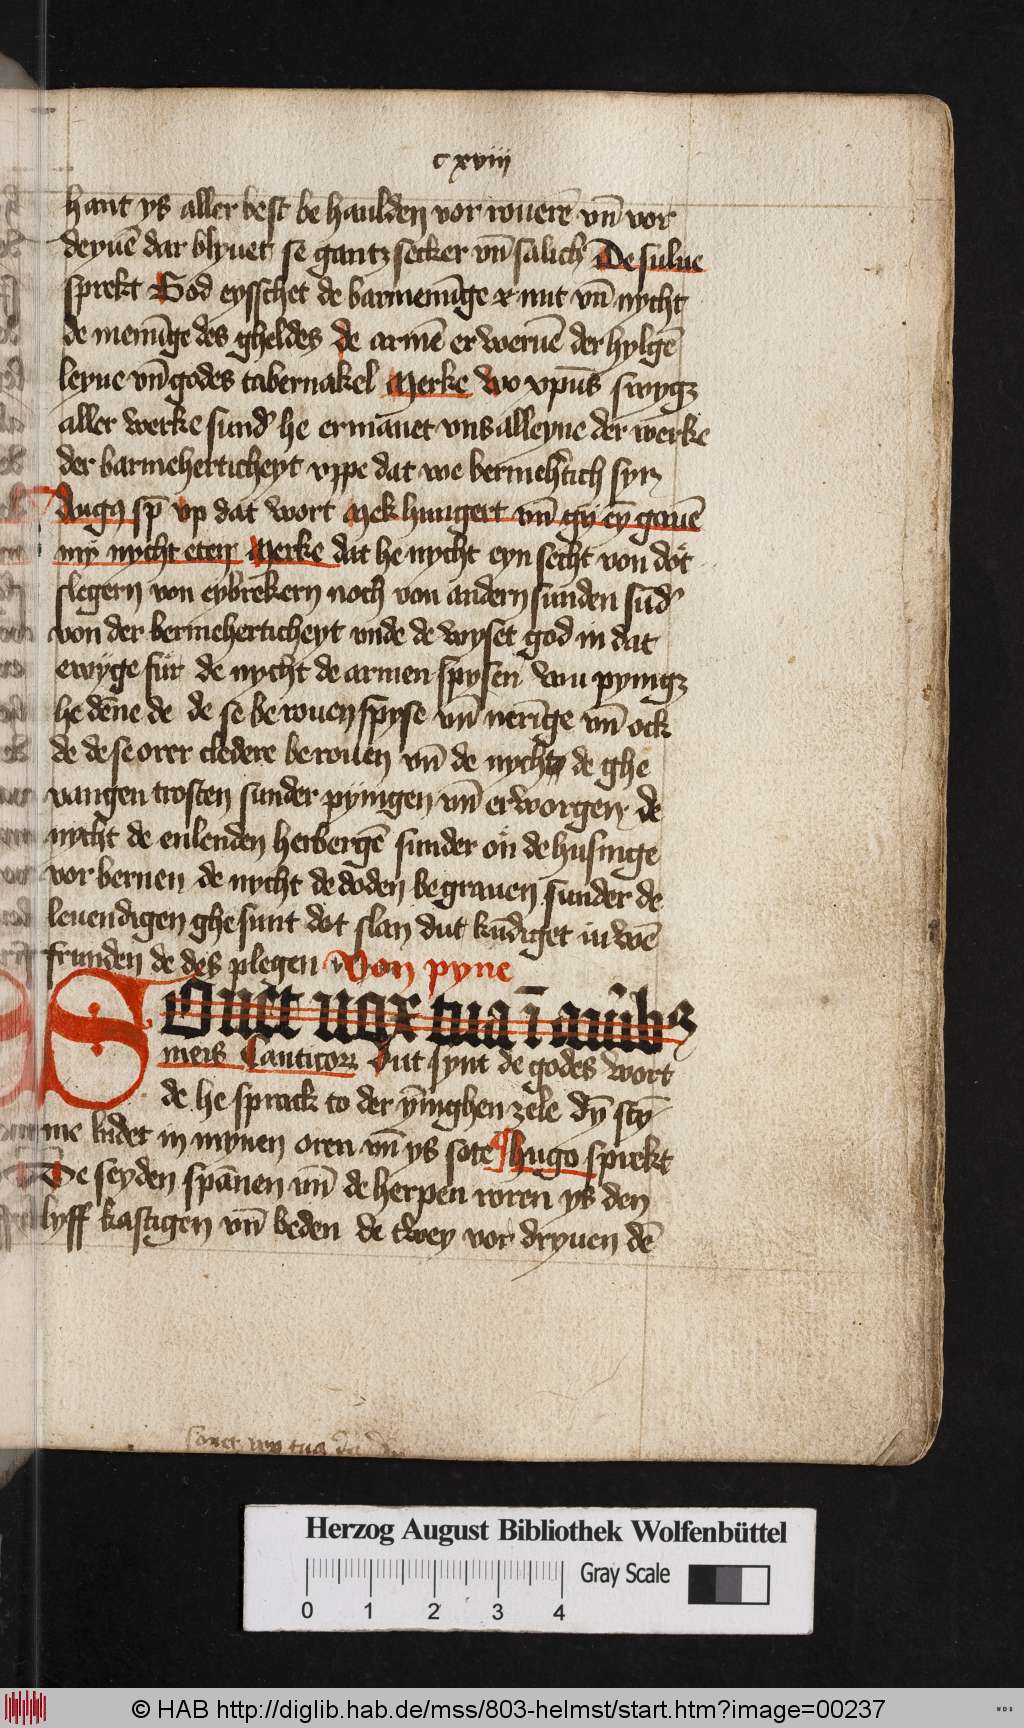 c xviii
hant ys aller best be haulden vor rouerē vn̄ vor
deyuē dar blyuet se gantz secker vn̄ salich De sulue
sprekt God eysschet de barmenīge x nut vn̄ nycht
de menīge des gheldes de armē er weruē der hylgē
leyne vn̄ godes tabernakel Merke wo xpūs swygꝫ
aller werke sund' he ermānet vns alleyne der werke
der barmeherticheyt vppe dat we bermeh'tich syn
Augꝰ sp̄ vp dat wort Mek hungert vn̄ gy ēn gauē
my nycht eten Merke dat he nycht eyn secht von dot
slegern von eybrekern noch von andern sunden sud'
von der bermeherticheyt vnde de wyset god in dat
ewyge fur de nycht de armen spysen wu pynigꝫ
he dēne de de se be rouen spyse vn̄ nerīge vn̄ ock
de de se orer cledere be rouen vn̄ de nycht de ghe
vangen trosten sunder pynigen vn̄ er worgen de
nycht de enlenden herbergē sunder on de husinge
vor bernen de nycht de doden be grauen sunder de
leuendigen ghe sunt dot slan dut kūdiget iuwē
frunden de des plegen Von pyne
Sonet uox tua ī auribꝫ
meis Canticoꝝ Dut synt de godes wort
de he sprack to der ȳnighen zele dȳ stȳ
me ludet in mynen oren vn̄ ys sote Hugo sprekt
De seyden spānen vn̄ de herpen roren ys den
lyff kastigen vn̄ beden de twey vor dryuen dē
sonet vox tua
Herzog August Bibliothek Wolfenbüttel
Gray Scale
0 1 2 3 4
© HAB http://diglib.hab.de/mss/803-helmst/start.htm?image=00237